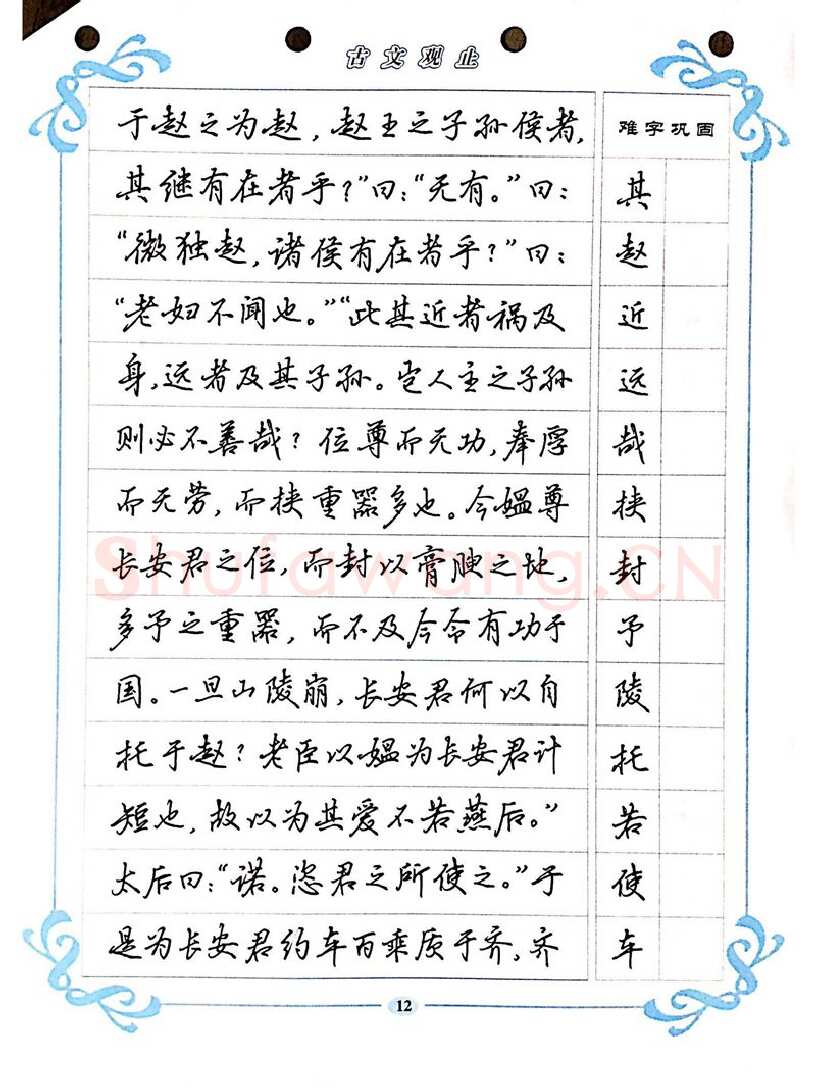 古文观止
于赵之为赵，赵王之子孙侯者，
难字巩固
其继有在者乎？”曰：“无有。”曰：
其
“微独赵，诸侯有在者乎？”曰：
赵
“老妇不闻也。”“此其近者祸及
近
身，远者及其子孙。岂人主之子孙
远
则必不善哉？位尊而无功，奉厚
哉
而无劳，而挟重器多也。今媪尊
挟
长安君之位，而封以膏腴之地，
封
多予之重器，而不及今令有功于
予
国。一旦山陵崩，长安君何以自
陵
托于赵？老臣以媪为长安君计
托
短也，故以为其爱不若燕后。”
若
太后曰：“诺。恣君之所使之。”于
使
是为长安君约车百乘质于齐，齐
车
12
Shufawang.CN